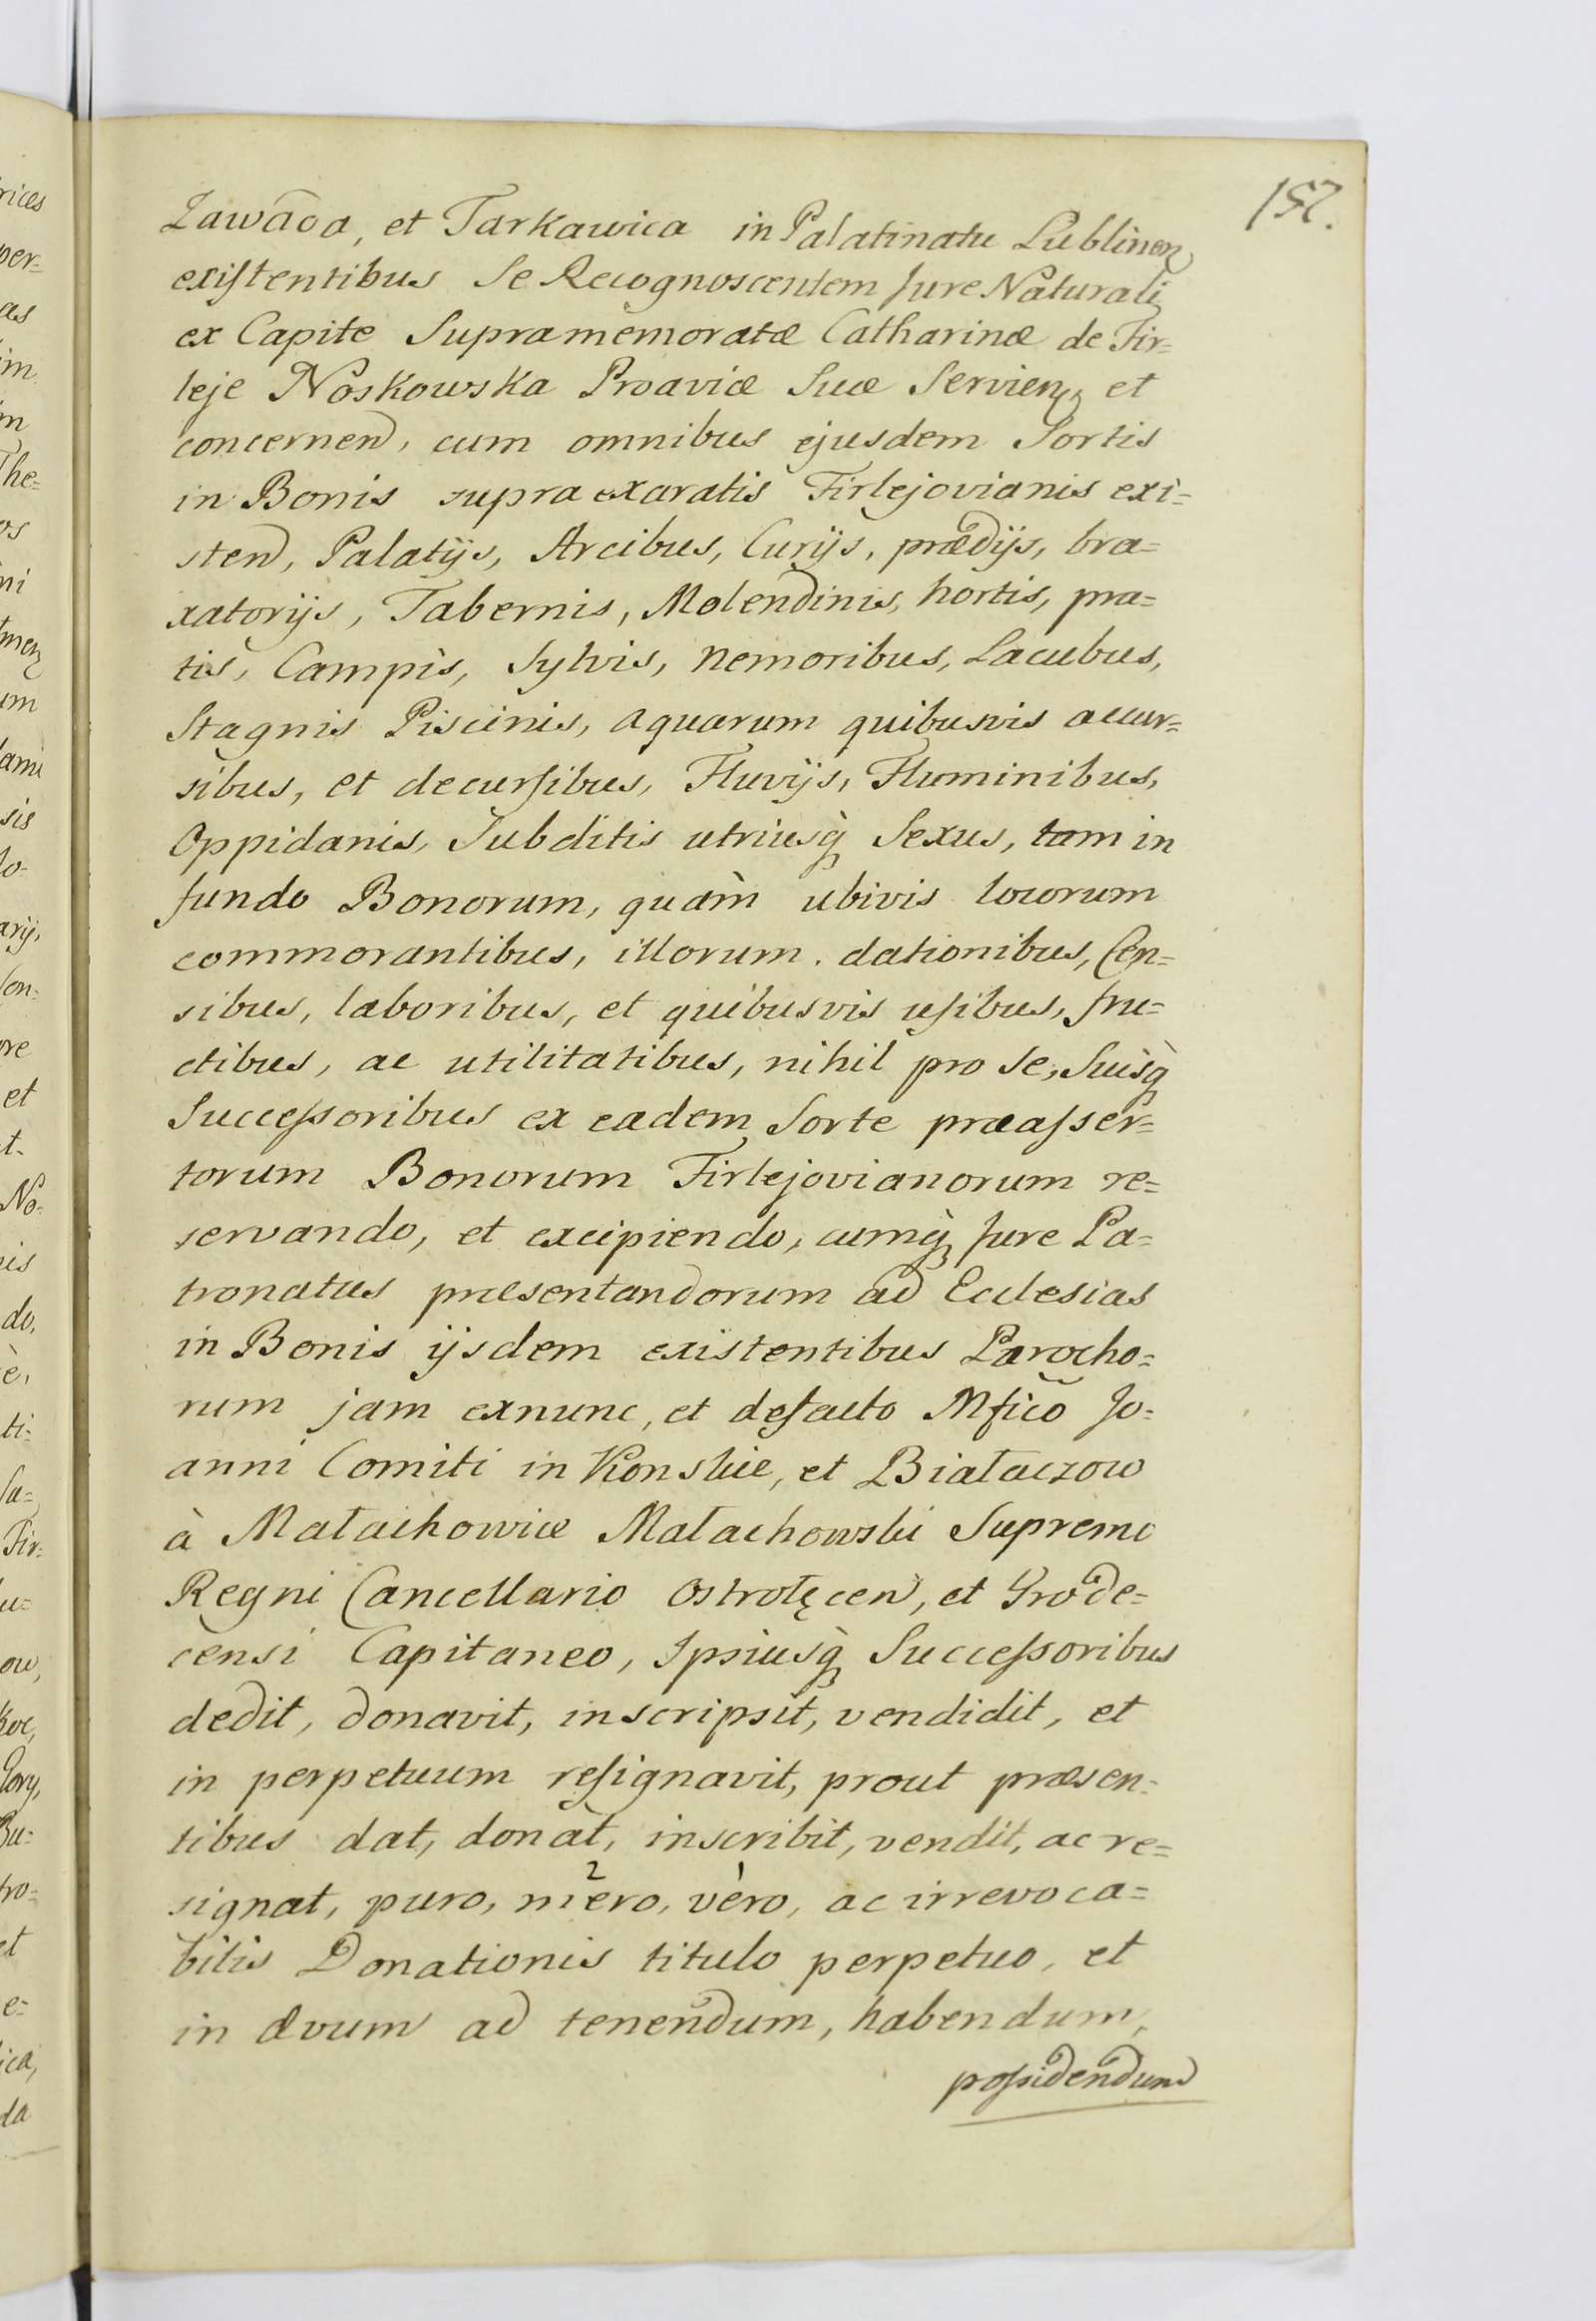 157.
Zawada, et Tarkawica in Palatinatu Lublinen
existentibus Se Recognoscentem Jure Naturali
ex Capite Supramemoratæ Catharinæ de Fir=
leje Noskowska Proaviæ Suæ Servien, et
concernen, cum omnibus ejusdem Sortis
in Bonis supra exaratis Firlejovianis exi=
sten, Palatijs, Arcibus, Curijs, prædijs, bra=
xatorijs, Tabernis, Molendinis, hortis, pra=
tis, Campis, Sylvis, Nemoribus, Lacubus,
Stagnis Piscinis, aquarum quibusvis accur=
sibus, et decursibus, Fluvijs, Fluminibus,
Oppidanis, Subditis utriusq̀ Sexus, tam in
fundo Bonorum, quàm ubivis locorum
commorantibus, illorum dationibus, Cen=
sibus, laboribus, et quibusvis usibus, fru=
ctibus, ac utilitatibus, nihil pro se, Suisq̀
Successoribus ex eadem Sorte præasser=
torum Bonorum Firlejovianorum re=
servando, et excipiendo, cumq̀ Jure Pa=
tronatus præsentandorum ad Ecclesias
in Bonis ijsdem existentibus Parocho=
rum jam exnunc, et defacto Mfico Jo=
anni Comiti in Konskie, et Białaczow
à Małachowice Małachowski Supremo
Regni Cancellario Ostrołęcen, et Grode=
censi Capitaneo, Ipsiusq̀ Successoribus
dedit, donavit, inscripsit, vendidit, et
in perpetuum resignavit, prout præsen=
tibus dat, donat, inscribit, vendit, ac re=
signat, puro, mero, vero, ac irrevoca=
bilis Donationis titulo perpetuo, et
in ævum ad tenendum, habendum,
possidendum